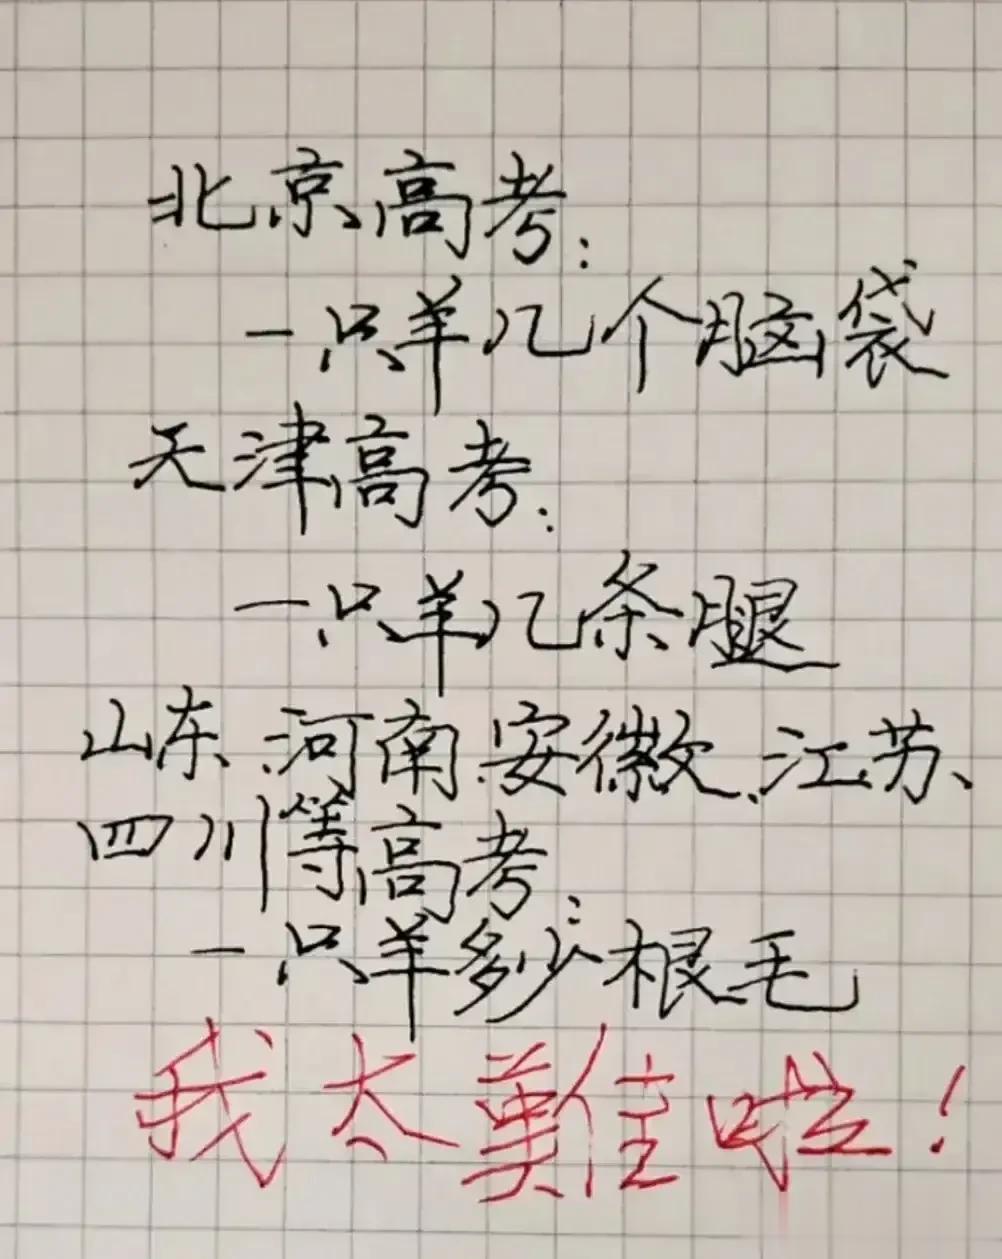 北京高考:
一只羊几个脑袋
天津高考:
一只羊几条腿
山东、河南、安徽、江苏、
四川等高考:
一只羊多少根毛
我太難啦!